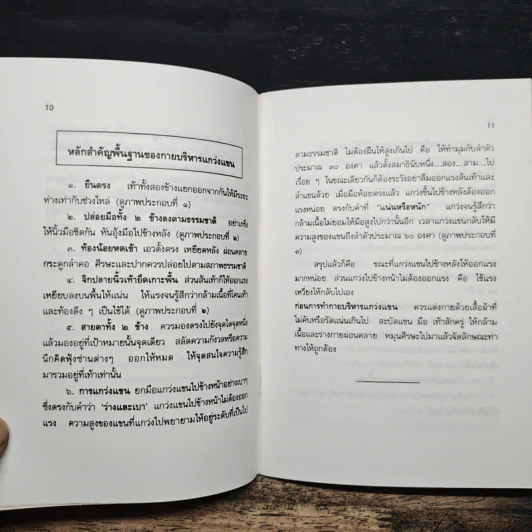 10
หลักสำคัญพื้นฐานของกายบริหารแกว่งแขน
๑. ยืนตรง เท้าทั้งสองข้างแยกออกจากกันให้มีระยะ
ห่างเท่ากับช่วงไหล่ (ดูภาพประกอบที่ ๑)
๒. ปล่อยมือทั้ง ๒ ข้างลงตามธรรมชาติ อย่าเกร็ง
ให้นิ้วมือชิดกัน หันอุ้งมือไปข้างหลัง (ดูภาพประกอบที่ ๒)
๓. ท้องน้อยหดเข้า เอวตั้งตรง เหยียดหลัง ผ่อนคลาย
กระดูกลำคอ ศีรษะและปากควรปล่อยไปตามสภาพธรรมชาติ
๔. จิกปลายนิ้วเท้ายึดเกาะพื้น ส่วนส้นเท้าก็ให้ออกแรง
เหยียบลงบนพื้นให้แน่น ให้แรงจนรู้สึกว่ากล้ามเนื้อที่โคนเท้า
และท้องตึง ๆ เป็นใช้ได้ (ดูภาพประกอบที่ ๒)
๕. สายตาทั้ง ๒ ข้าง ควรมองตรงไปยังจุดใดจุดหนึ่ง
แล้วมองอยู่ที่เป้าหมายนั้นจุดเดียว สลัดความกังวลหรือความ
นึกคิดฟุ้งซ่านต่างๆ ออกให้หมด ให้จุดสนใจความรู้สึก
มารวมอยู่ที่เท้าเท่านั้น
๖. การแกว่งแขน ยกมือแกว่งแขนไปข้างหน้าอย่างเบาๆ
ซึ่งตรงกับคำว่า 'ว่างและเบา' แกว่งแขนไปข้างหน้าไม่ต้องออก
แรง ความสูงของแขนที่แกว่งไปพยายามให้อยู่ระดับที่เป็นไป
11
ตามธรรมชาติ ไม่ต้องฝืนให้สูงเกินไป คือ ให้ทำมุมกับลำตัว
ประมาณ ๓๐ องศา แล้วตั้งสมาธินับหนึ่ง...สอง...สาม...ไป
เรื่อย ๆ ในขณะเดียวกันก็ต้องระวังอย่าลืมออกแรงส้นเท้าและ
ลำแขนด้วย เมื่อมือห้อยตรงแล้ว แกว่งขึ้นไปข้างหลังต้องออก
แรงหน่อย ตรงกับคำที่ "แน่นหรือหนัก" แกว่งจนรู้สึกว่า
กล้ามเนื้อไม่ยอมให้มือสูงไปกว่านั้นอีก เวลาแกว่งแขนกลับให้มี
ความสูงของแขนถึงลำตัวประมาณ ๖๐ องศา (ดูภาพประกอบที่
๓)
สรุปแล้วก็คือ ขณะที่แกว่งแขนไปข้างหลังให้ออกแรง
มากหน่อย ส่วนแกว่งไปข้างหน้าไม่ต้องออกแรง คือ ใช้แรง
เหวี่ยงให้กลับไปเอง
ก่อนการทำกายบริหารแกว่งแขน ควรแต่งกายด้วยเสื้อผ้าที่
ไม่คับหรือรัดแน่นเกินไป สะบัดแขน มือ เท้าสักครู่ ให้กล้าม
เนื้อและร่างกายผ่อนคลาย หมุนศีรษะไปมาแล้วจัดลักษณะท่า
ทางให้ถูกต้อง